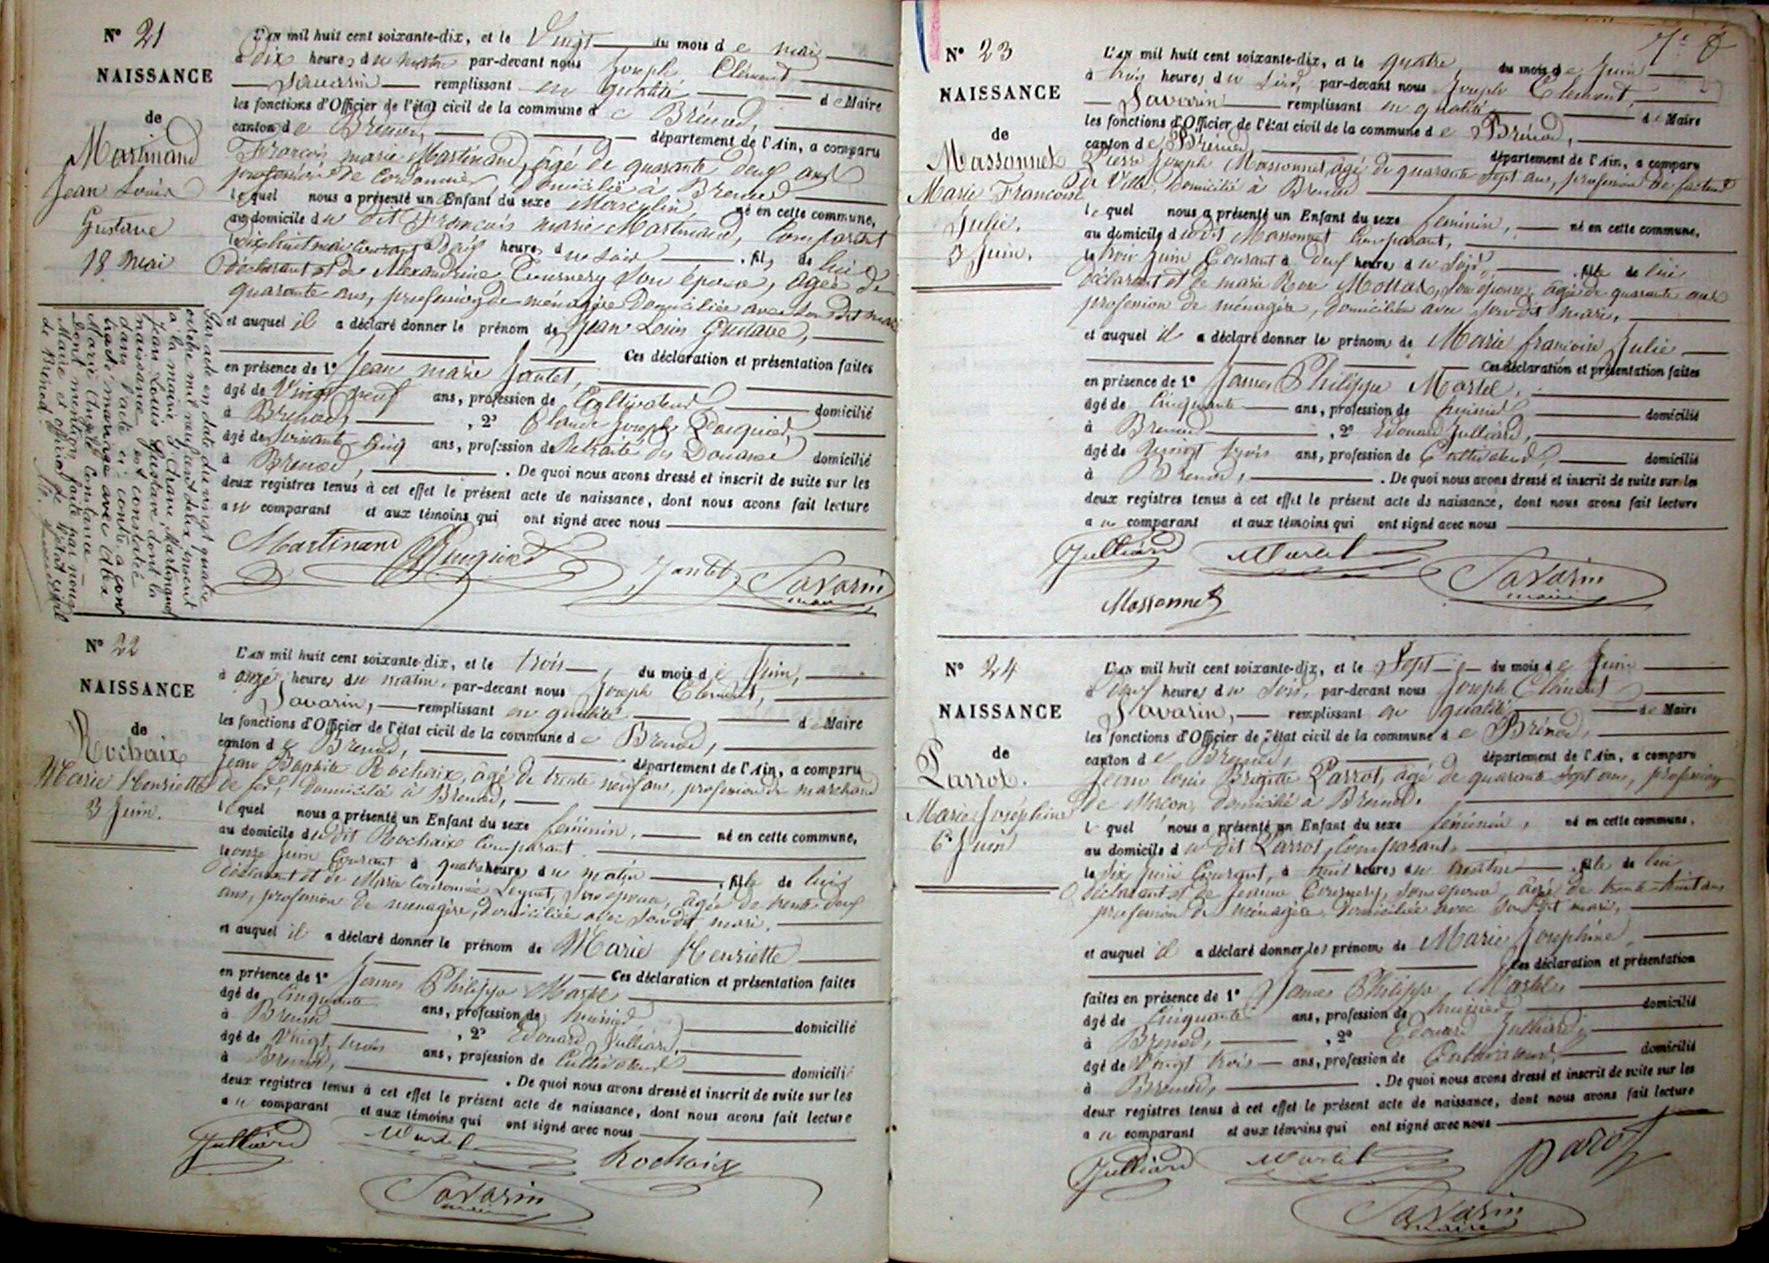 N° 21
NAISSANCE
de
Martinand
Jean Louis
Gustave
18 mai
L'AN mil huit cent soixante-dix, et le Vingt du mois de mai
à dix heures du matin par-devant nous Joseph Clément
Savarin remplissant en qualité de Maire
les fonctions d'Officier de l'état civil de la commune de Brénod,
canton de Brénod, département de l'Ain, a comparu
François marie Martinand, âgé de quarante deux ans
profession de Cordonnier domicilié à Brénod
lequel nous a présenté un Enfant du sexe Masculin né en cette commune,
au domicile du dit François marie Martinand, Comparant
le dix huit mai courant à heures du soir, fils de lui
déclarant et de Alexandrine Tournery son épouse, âgée de
quarante ans, profession de ménagère domiciliée avec son dit mari
et auquel il a déclaré donner le prénom de Jean Louis Gustave,
Ces déclaration et présentation faites
en présence de 1° Jean marie Jantet,
âgé de Vingt neuf ans, profession de Cultivateur domicilié
à Brénod, , 2° Claude Joseph
âgé de soixante cinq ans, profession de Retraité des Douanes domicilié
à Brénod, . De quoi nous avons dressé et inscrit de suite sur les
deux registres tenus à cet effet le présent acte de naissance, dont nous avons fait lecture
au comparant et aux témoins qui ont signé avec nous
Martinand Jantet Savarin
maire
Par acte en date du vingt quatre
octobre mil neuf cent deux, inscrit
à la mairie Martinand
Jean Louis Gustave dont la
naissance est constatée
dans l'acte ci-contre a con
tracté mariage avec
Marie Constance
Dont mention faite par nous
Maire et officier de l'état civil
de Brénod
N° 22
NAISSANCE
de
Rochaix
Marie Henriette
3 Juin.
L'AN mil huit cent soixante-dix, et le trois du mois de Juin,
à onze heures du matin, par-devant nous Joseph Clément,
Savarin, remplissant en qualité de Maire
les fonctions d'Officier de l'état civil de la commune de Brénod,
canton de Brénod, département de l'Ain, a comparu
Jean Baptiste Rochaix, âgé de trente neuf ans, profession de marchand
de fer, domicilié à Brénod,
lequel nous a présenté un Enfant du sexe féminin, né en cette commune,
au domicile du dit Rochaix Comparant
le Juin Courant à quatre heures du matin, fille de lui
déclarant et de Marie son épouse, âgée de trente
ans, profession de ménagère, domiciliée avec son dit mari.
et auquel il a déclaré donner le prénom de Marie Henriette
Ces déclaration et présentation faites
en présence de 1° James Philippe Martel
âgé de Cinquante ans, profession de huissier domicilié
à Brénod , 2° Edouard Julliard,
âgé de Vingt trois ans, profession de Cultivateur domicilié
à Brénod, . De quoi nous avons dressé et inscrit de suite sur les
deux registres tenus à cet effet le présent acte de naissance, dont nous avons fait lecture
au comparant et aux témoins qui ont signé avec nous
Julliard Martel Rochaix
Savarin
maire
N° 23
NAISSANCE
de
Massonnet
Marie Francoise
Julie.
3 Juin.
L'AN mil huit cent soixante-dix, et le quatre du mois de Juin
à trois heures du soir, par-devant nous Joseph Clément,
Savarin remplissant en qualité de Maire
les fonctions d'Officier de l'état civil de la commune de Brénod,
canton de Brénod, département de l'Ain, a comparu
Pierre Joseph Massonnet, âgé de quarante sept ans, profession de facteur
de Ville, domicilié à Brénod
lequel nous a présenté un Enfant du sexe féminin, né en cette commune,
au domicile du dit Massonnet Comparant,
le trois Juin Courant à heures du soir, fille de lui
déclarant et de marie son épouse, âgée de quarante ans
profession de ménagère, domiciliée avec son dit mari,
et auquel il a déclaré donner les prénoms de Marie francoise Julie
Ces déclaration et présentation faites
en présence de 1° James Philippe Martel,
âgé de Cinquante ans, profession de huissier domicilié
à Brénod , 2° Edouard Julliard,
âgé de Vingt trois ans, profession de Cultivateur, domicilié
à Brénod, . De quoi nous avons dressé et inscrit de suite sur les
deux registres tenus à cet effet le présent acte de naissance, dont nous avons fait lecture
au comparant et aux témoins qui ont signé avec nous
Julliard Martel Savarin
maire
Massonnet
N° 24
NAISSANCE
de
Parrot.
Marie Joséphine
6 Juin
L'AN mil huit cent soixante-dix, et le Sept du mois de Juin
à heures du soir, par-devant nous Joseph Clément
Savarin, remplissant en qualité de Maire
les fonctions d'Officier de l'état civil de la commune de Brénod,
canton de Brénod, département de l'Ain, a comparu
Jean Louis Parrot, âgé de quarante sept ans, profession
de Maçon, domicilié à Brénod.
lequel nous a présenté un Enfant du sexe féminin, né en cette commune,
au domicile du dit Parrot, Comparant,
le Six Juin Courant, à huit heures du matin, fille de lui
déclarant et de Jeanne Tournery, son épouse, âgée de trente-huit ans
profession de ménagère, domiciliée avec son dit mari,
et auquel il a déclaré donner les prénoms de Marie Joséphine,
Ces déclaration et présentation
faites en présence de 1° James Philippe Martel,
âgé de Cinquante ans, profession de huissier, domicilié
à Brénod, , 2° Edouard Julliard,
âgé de Vingt trois ans, profession de Cultivateur, domicilié
à Brénod, . De quoi nous avons dressé et inscrit de suite sur les
deux registres tenus à cet effet le présent acte de naissance, dont nous avons fait lecture
au comparant et aux témoins qui ont signé avec nous
Julliard Martel Parot
Savarin
maire